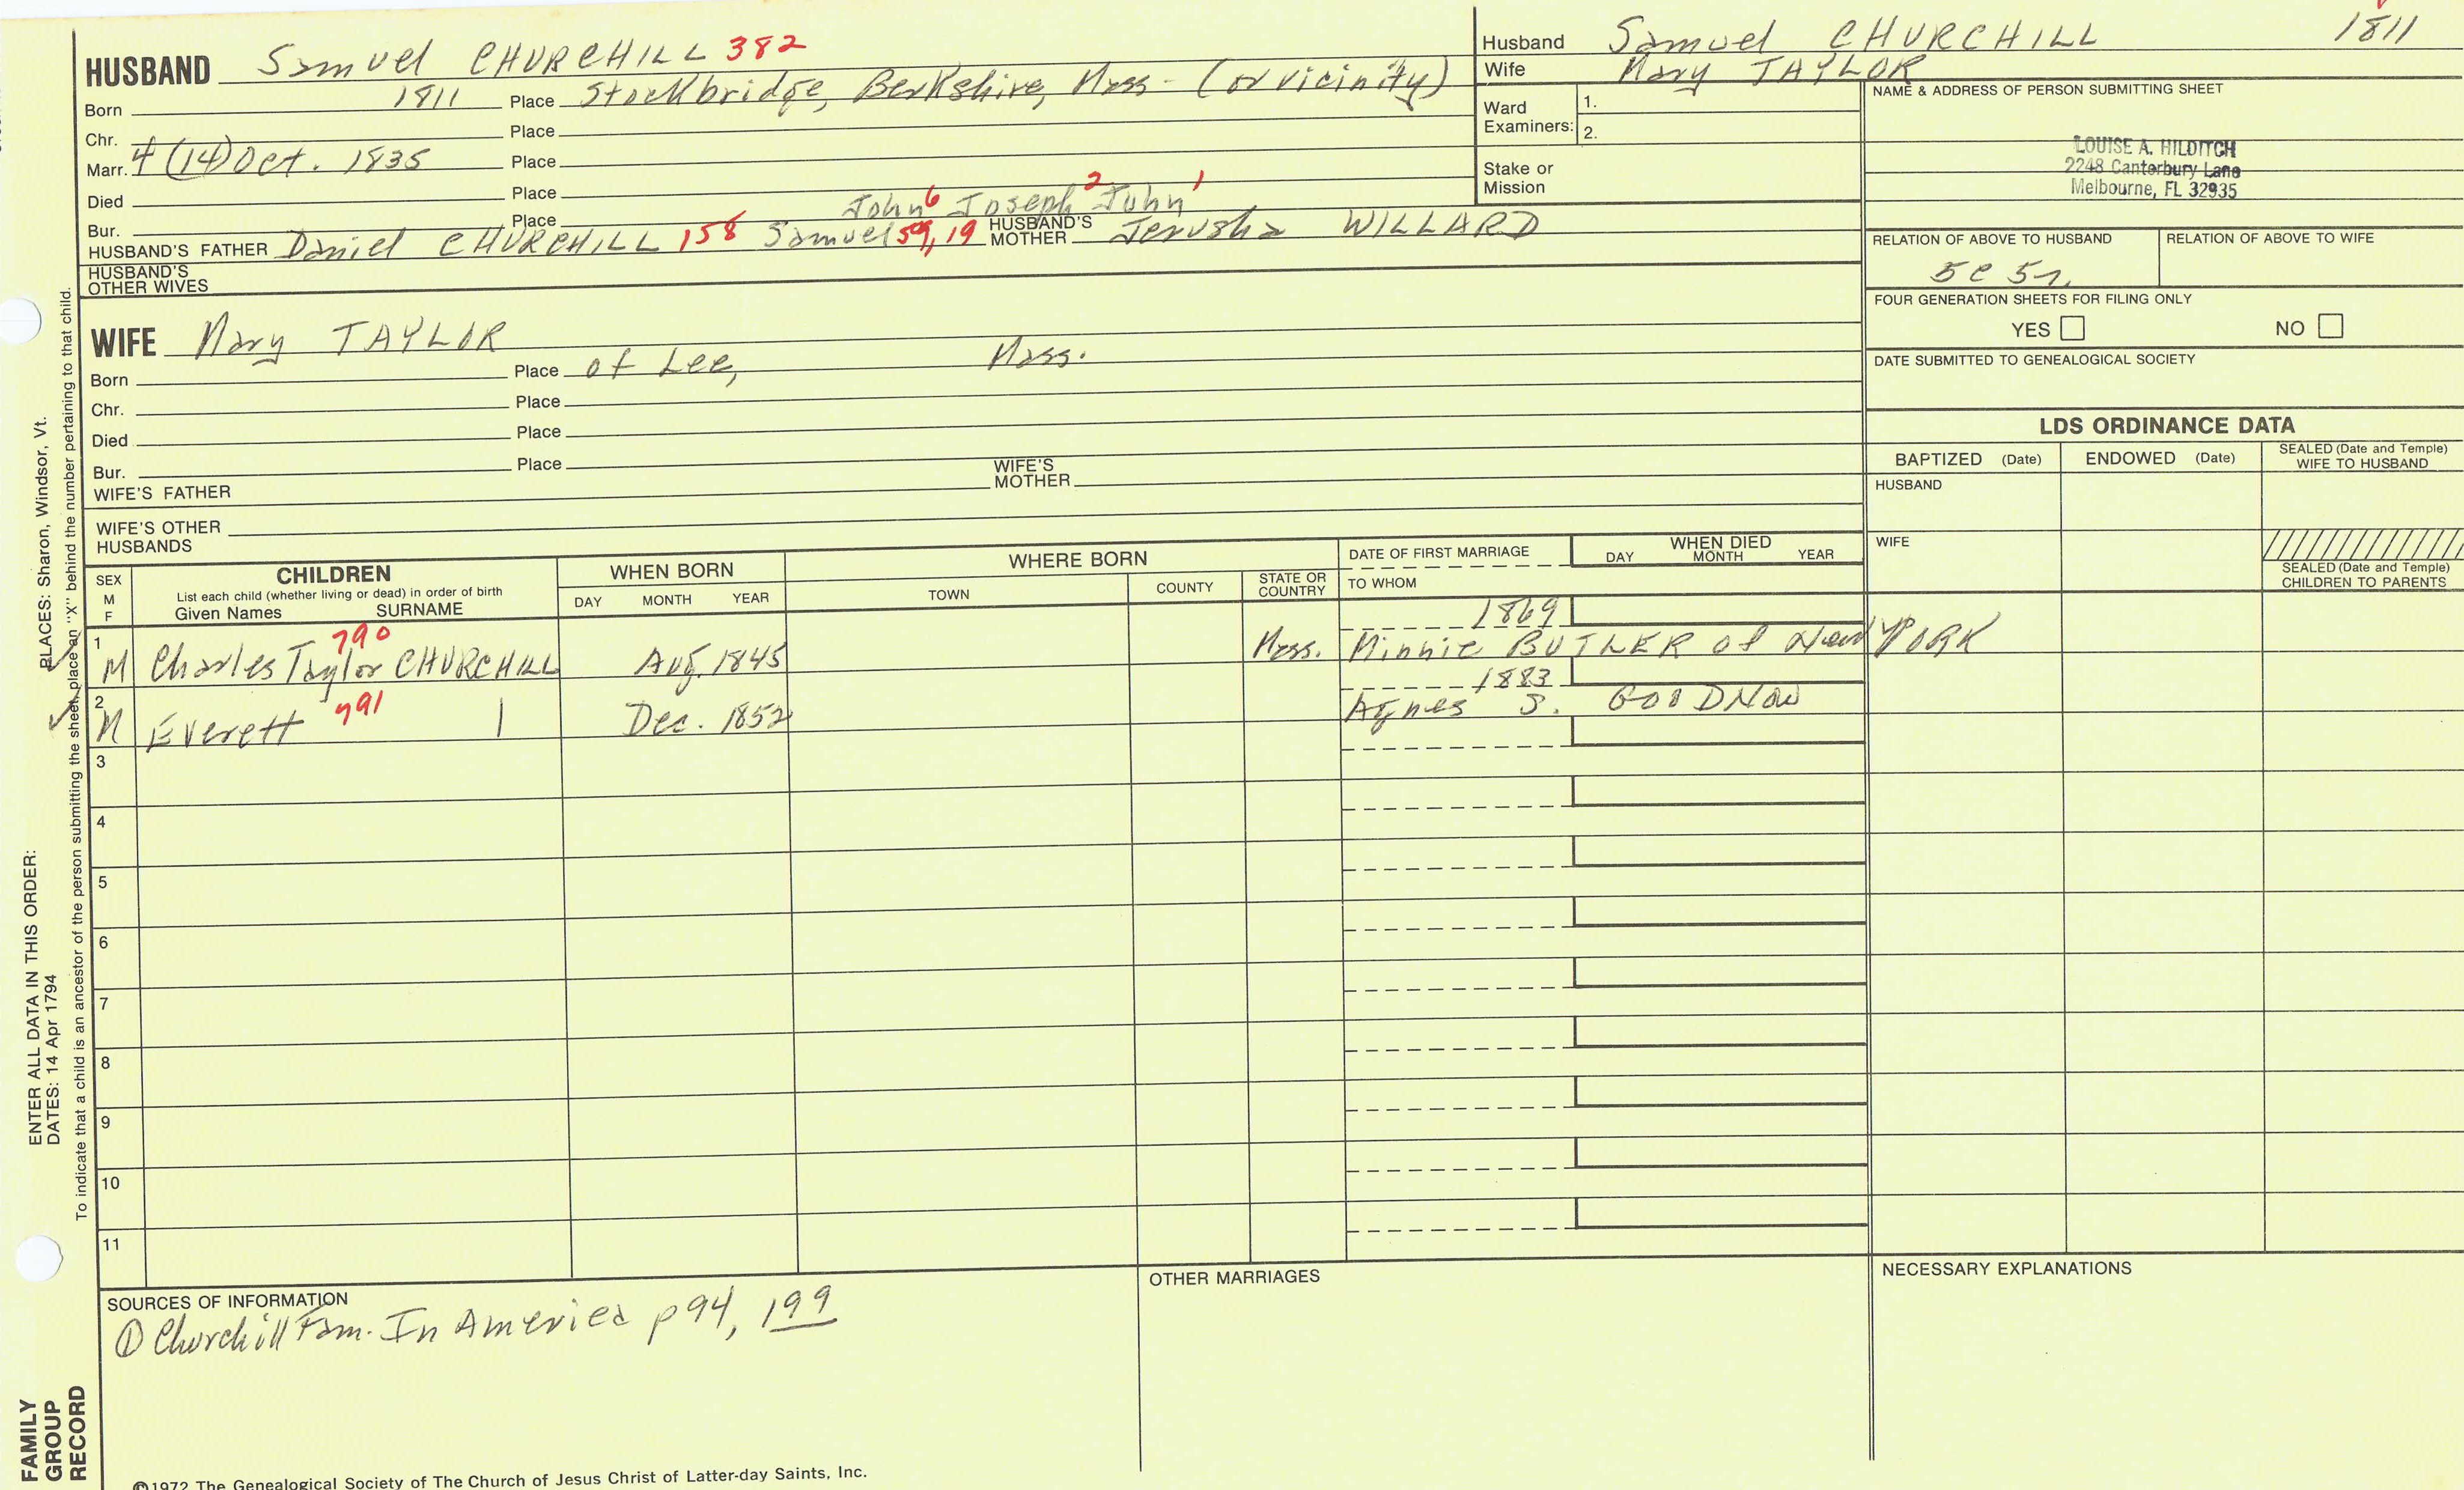 HUSBAND Samuel CHURCHILL 382
Born 1811 Place Stockbridge, Berkshire, Mass - (or vicinity)
Chr. Place
Marr. 4 (14) Oct. 1835 Place
Died Place
John 6 Joseph 2 John 1
Bur. Place
HUSBAND'S FATHER Daniel CHURCHILL 158 Samuel 59, 19 HUSBAND'S MOTHER Jerusha WILLARD
HUSBAND'S OTHER WIVES
Husband Samuel CHURCHILL 1811
Wife Mary TAYLOR
Ward Examiners: 1.
2.
Stake or Mission
NAME & ADDRESS OF PERSON SUBMITTING SHEET
LOUISE A. HILDITCH
2248 Canterbury Lane
Melbourne, FL 32935
RELATION OF ABOVE TO HUSBAND RELATION OF ABOVE TO WIFE
5C 5r.
FOUR GENERATION SHEETS FOR FILING ONLY
YES NO
DATE SUBMITTED TO GENEALOGICAL SOCIETY
WIFE Mary TAYLOR
Born Place of Lee, Mass.
Chr. Place
Died Place
Bur. Place
WIFE'S FATHER WIFE'S MOTHER
WIFE'S OTHER HUSBANDS
LDS ORDINANCE DATA
BAPTIZED (Date) ENDOWED (Date) SEALED (Date and Temple) WIFE TO HUSBAND
HUSBAND
WIFE
SEALED (Date and Temple) CHILDREN TO PARENTS
SEX M F
CHILDREN
List each child (whether living or dead) in order of birth
Given Names SURNAME
WHEN BORN
DAY MONTH YEAR
WHERE BORN
TOWN COUNTY STATE OR COUNTRY
DATE OF FIRST MARRIAGE
TO WHOM
WHEN DIED
DAY MONTH YEAR
1 790 1869
M Charles Taylor CHURCHILL Aug. 1845 Mass. Minnie BUTLER of New YORK
2 791 1883
M Everett | Dec. 1852 Agnes S. GOODNOW
3
4
5
6
7
8
9
10
11
SOURCES OF INFORMATION
① Churchill Fam. In America p 94, 199
OTHER MARRIAGES
NECESSARY EXPLANATIONS
©1972 The Genealogical Society of The Church of Jesus Christ of Latter-day Saints, Inc.
FAMILY
GROUP
RECORD
ENTER ALL DATA IN THIS ORDER:
DATES: 14 Apr 1794
PLACES: Sharon, Windsor, Vt.
To indicate that a child is an ancestor of the person submitting the sheet, place an "X" behind the number pertaining to that child.